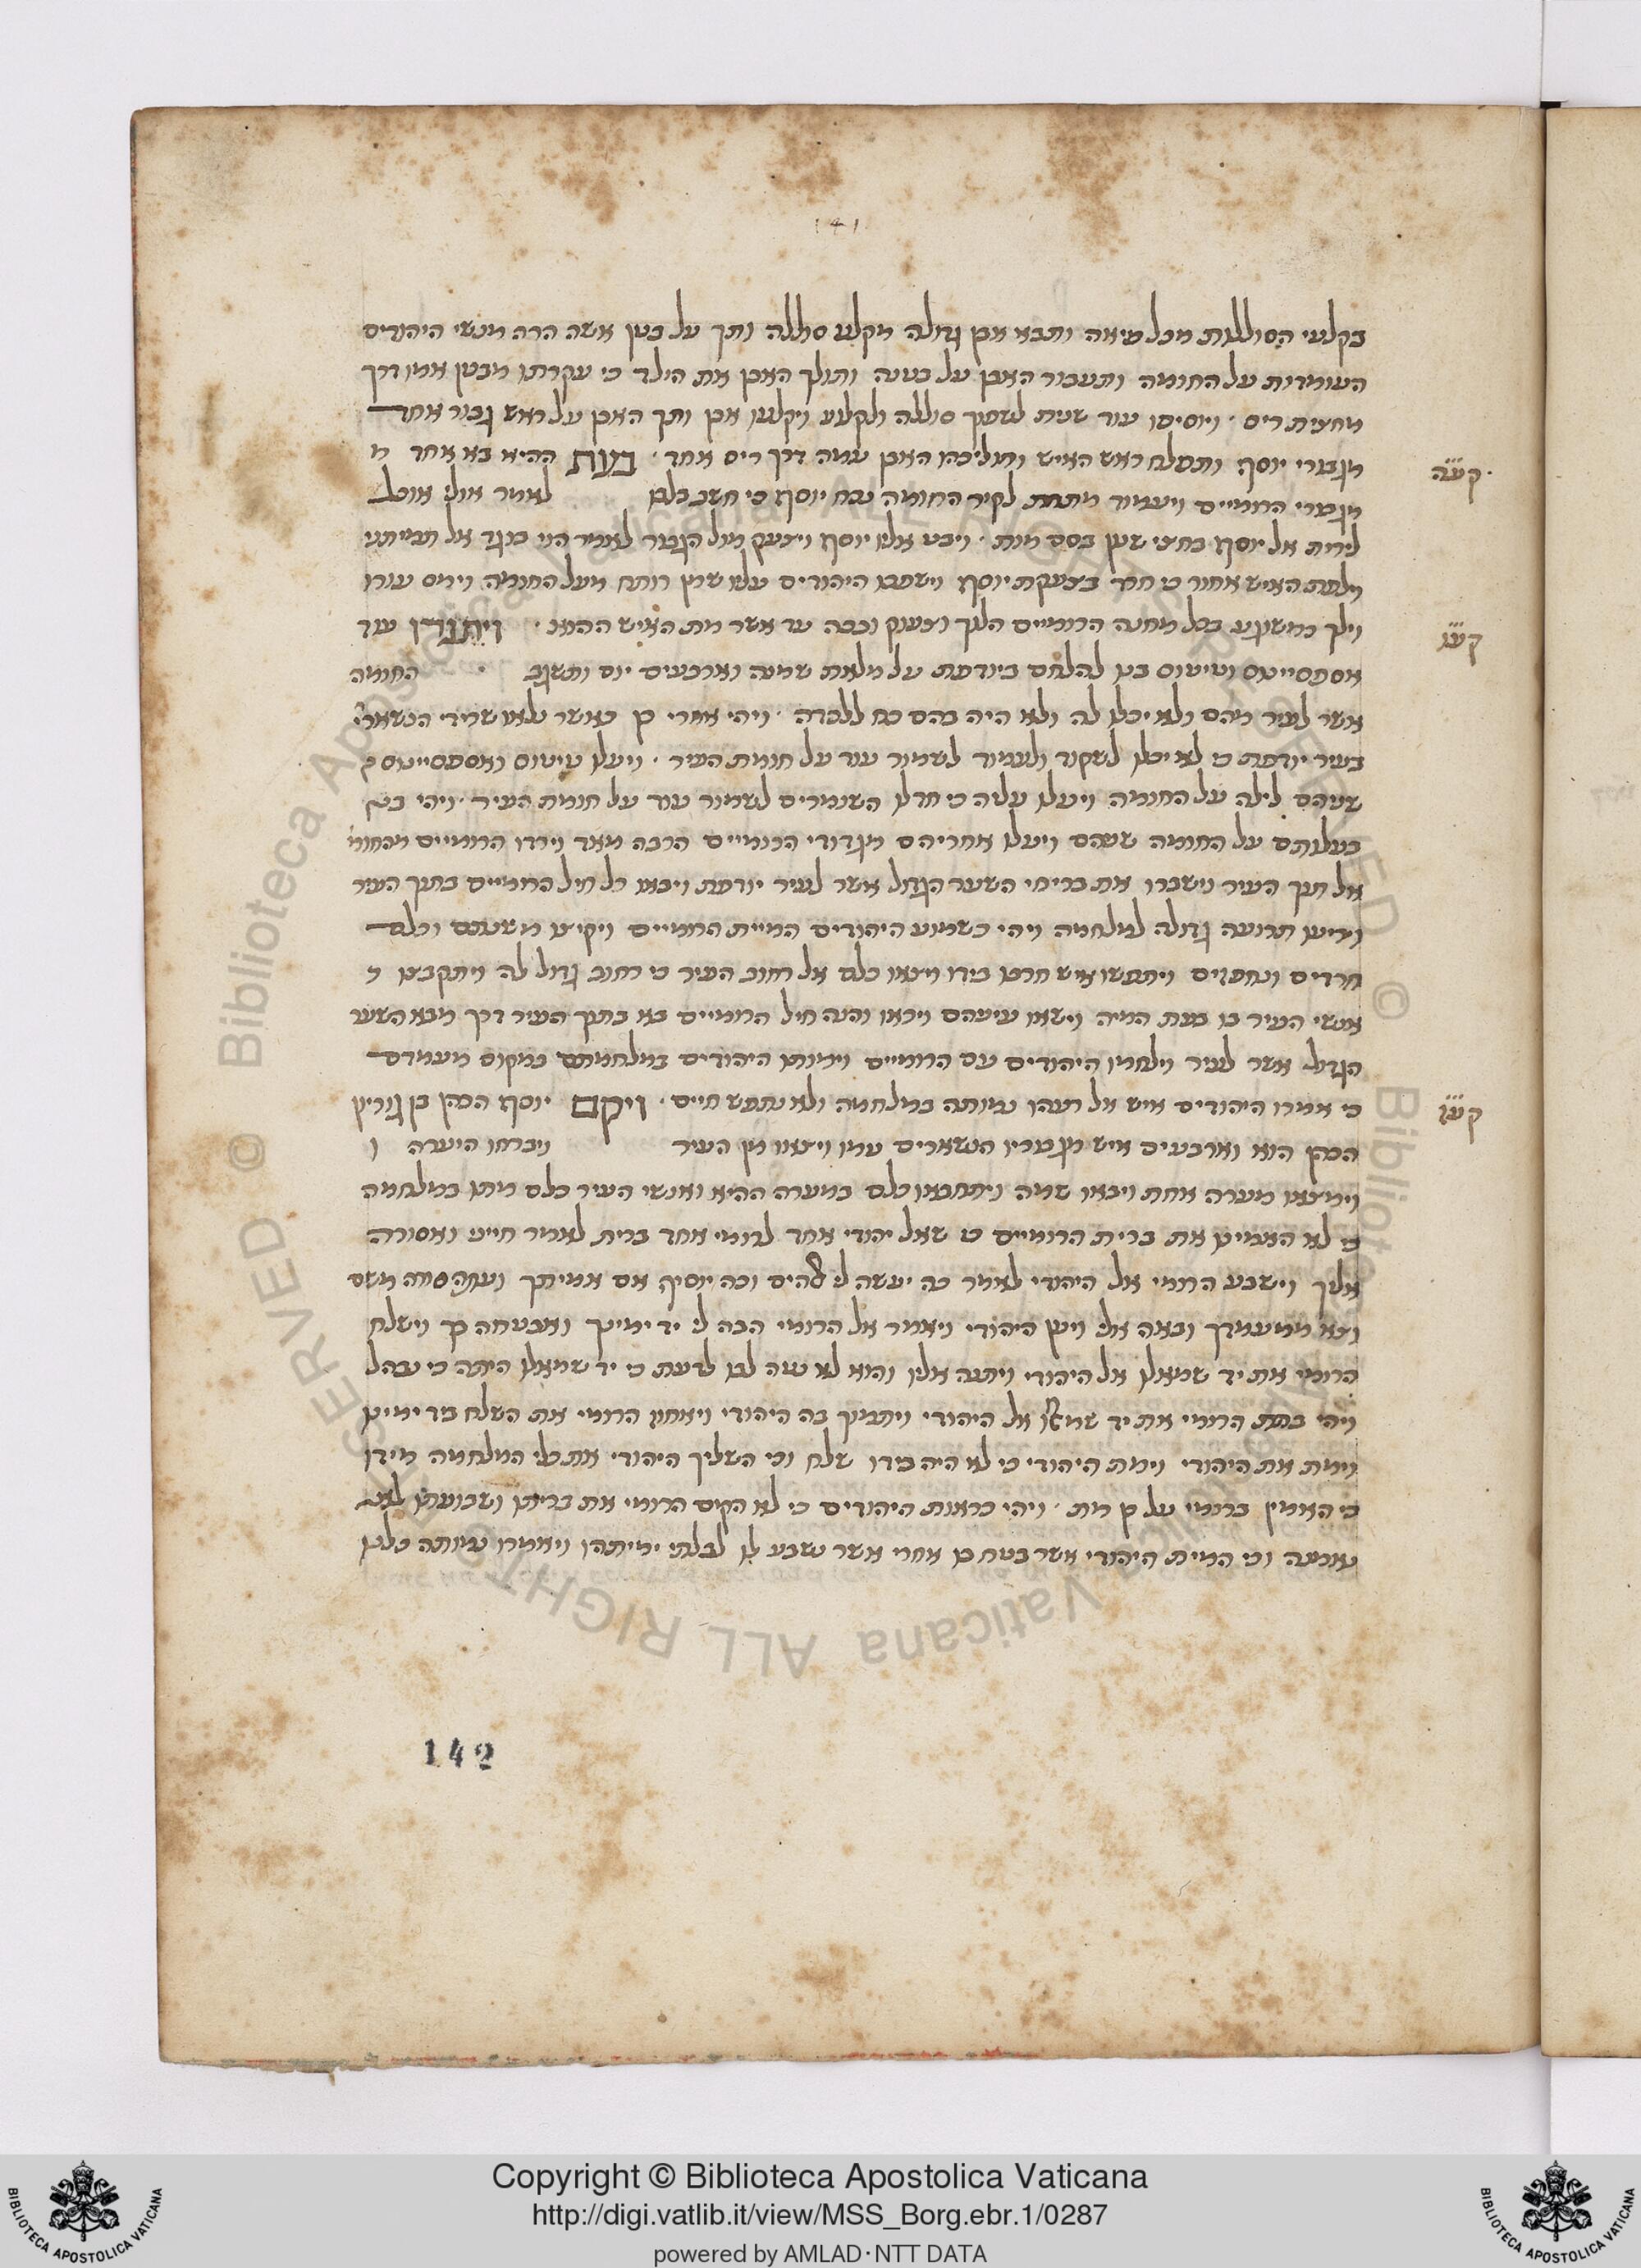 141
בקלעי הסוללות מכל פיאה ותבא אבן גדולה מקלע סוללה ותך על בטן אשה הרה מנשי היהודים
העומדות על החומה ותעבור האבן על בטנה ותולך האבן את הילד כי עקרתו מבטן אמו דרך
מחצית ריס · ויוסיפו עוד שנית לשפוך סוללה ולקלע ויקלעו אבן ותך האבן על ראש גבור אחד
מגבורי יוסף ותפלח ראש האיש ותוליכהו האבן עמה דרך ריס אחד · בעת ההיא בא אחד מ
קעה
מגבורי הרומיים ויעמוד מתחת לקיר החומה נכח יוסף כי חשב בלבו לאמר אולי אוכל
לירות אל יוסף בחצי שנון בסם מות · ויבט אליו יוסף ויצעק מול הגבור לאמר הנני כנגדך אל תמיתני
ויפן האיש אחור כי חרד בצעקת יוסף וישפכו היהודים עליו שמן רותח מעל החומה וימס עורו
וילך כמשוגע בכל מחנה הרומיים הלוך וצעוק ובכה עד אשר מת האיש ההוא · ויתגר עוד
קעו
אספסיינוס וטיטוס בנו להלחם ביודפת על מלאת שמנה וארבעים יום ותשגב · החומה
אשר לעיר מהם ולא יכלו לה ולא היה בהם כח ללכדה · ויהי אחרי כן כאשר נלאו שרידי הנשארי׳
בעיר יודפת כי לא יכלו לשקוד ולעמוד לשמור עוד על חומת העיר · ויעלו טיטוס ואספסיינוס
שניהם לילה על החומה ויעלו עליה כי חדלו השומרים לשמור עוד על חומת העיר · ויהי
בעלותם על החומה שניהם ויעלו אחריהם מגדודי הרומיים הרבה מאד וירדו הרומיים מהחומ׳
אל תוך העיר וישברו את בריחי השער הגדול אשר לעיר יודפת ויבאו כל חיל הרומיים בתוך העיר
ויריעו תרועה גדולה למלחמה ויהי כשמוע היהודים המיית הרומיים ויקיצו משנתם וכלם
חרדים ונחפזים ויתפשו איש חרבו בידו ויצאו כלם אל רחוב העיר כי רחוב גדול לה ויתקבצו
אנשי העיר בו בעת ההיא וישאו עיניהם ויראו והנה חיל הרומיים בא בתוך העיר דרך מבא השער
הגדול אשר לעיר וילחמו היהודים עם הרומיים וימותו היהודים במלחמתם במקום מעמדם
כי אמרו היהודים איש אל רעהו נמותה במלחמה ולא נתפש חיים · ויקם יוסף הכהן בן גוריון
קעז
הכהן הוא וארבעים איש מגבוריו הנשארים עמו ויצאו מן העיר ויברחו היערה ו
וימצאו מערה אחת ויבאו שמה ויתחבאו כלם במערה ההיא ואנשי העיר כלם מתו במלחמה
כי לא האמינו את ברית הרומיים כי שאל יהודי אחד לרומי אחד ברית לאמר חייני ואסורה
אליך וישבע הרומי אל היהודי לאמר כה יעשה לי אלהים וכה יוסיף אם אמיתך ועתה סורה משם
וצא ממעמדך ובאה אלי ויען היהודי ויאמר אל הרומי הבה לי יד ימינך ואבטחה בך וישלח
הרומי את יד שמאלו אל היהודי ויתנה אליו והוא לא שת לבו לדעת כי יד שמאלו היתה כי נבהל
ויהי בתת הרומי את יד שמאלו אל היהודי ויתמוך בה היהודי ויאחז הרומי את השלח ביד ימינו
וימת את היהודי וימת היהודי כי לא היה בידו שלח וכי השליך היהודי את כלי המלחמה מידו
כי האמין ברומי על כן מת · ויהי כראות היהודים כי לא הקים הרומי את בריתו ושבועתו
וכי המית היהודי אשר בטח בו אחרי אשר נשבע לו לבלתי ימיתהו ויאמרו נמותה כלנו
142
Copyright © Biblioteca Apostolica Vaticana
http://digi.vatlib.it/view/MSS_Borg.ebr.1/0287
powered by AMLAD·NTT DATA